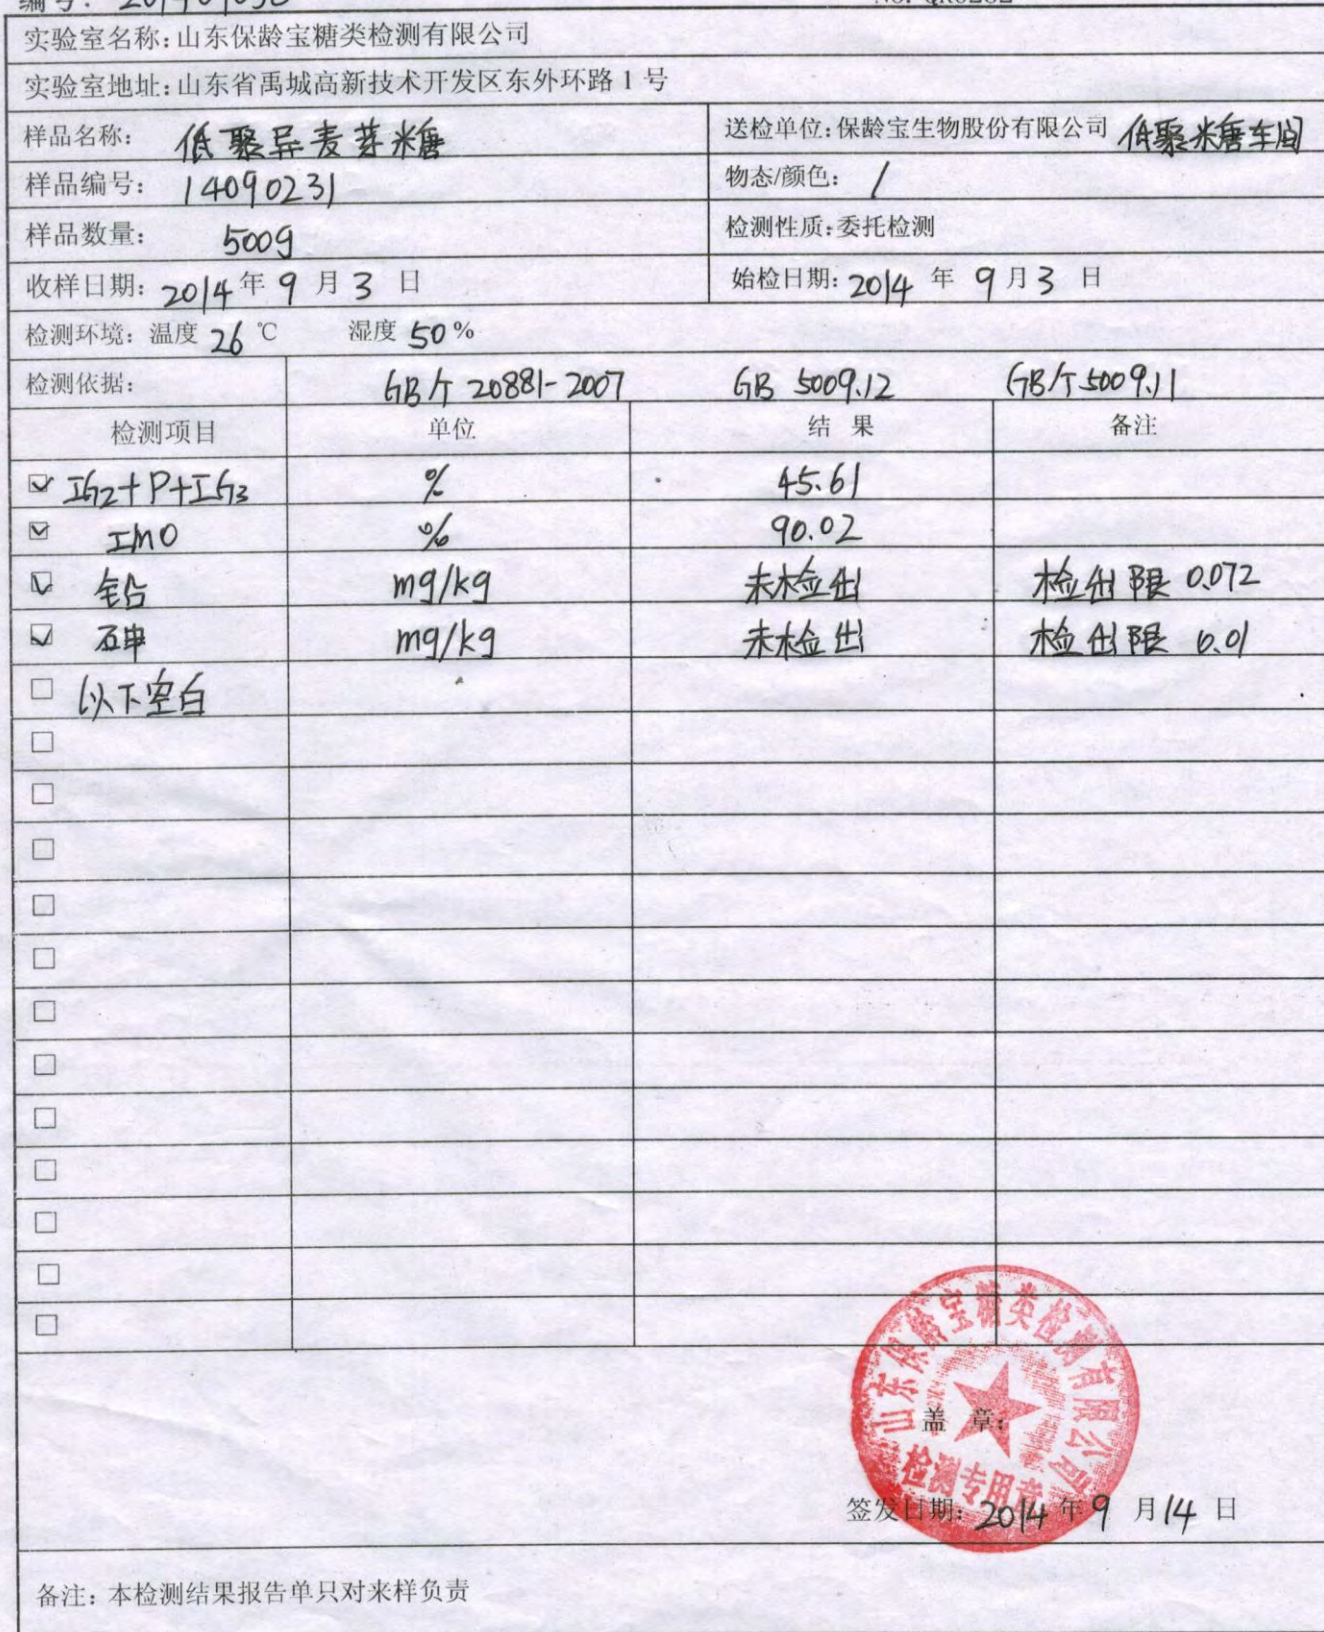 实验室名称:山东保龄宝糖类检测有限公司
实验室地址:山东省禹城高新技术开发区东外环路 1 号
样品名称: 低聚异麦芽糖 送检单位:保龄宝生物股份有限公司 低聚糖车间
样品编号: 14090231 物态/颜色: /
样品数量: 500g 检测性质:委托检测
收样日期: 2014 年 9 月 3 日 始检日期: 2014 年 9 月 3 日
检测环境: 温度 26 ℃ 湿度 50 %
检测依据: GB/T 20881-2007 GB 5009.12 GB/T 5009.11
检测项目 单位 结 果 备注
☑ IG2+P+IG3 % 45.61
☑ IMO % 90.02
☑ 铅 mg/kg 未检出 检出限 0.072
☑ 砷 mg/kg 未检出 检出限 0.01
□ 以下空白
□
□
□
□
□
□
□
□
□
□
□
□
山东保龄宝糖类检测有限公司
盖 章:
检测专用章
签发日期: 2014 年 9 月 14 日
备注: 本检测结果报告单只对来样负责